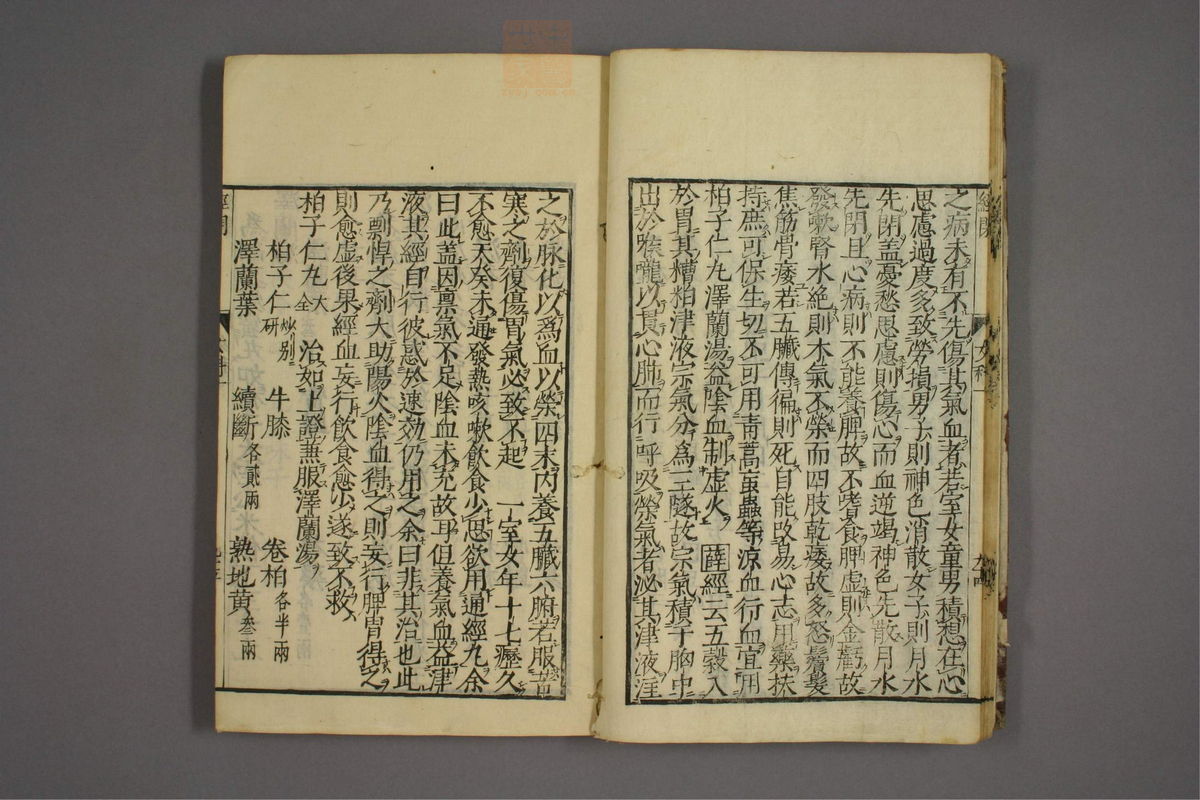 之病未有不先傷其氣血者若室女童男積想在心
思慮過度多致勞損男子則神色消散女子則月水
先閉盖憂愁思慮則傷心而血逆竭神色先散月水
先閉且心病則不能養脾故不嗜食脾虛則金虧故
發嗽腎水絕則木氣不榮而四肢乾痿故多怒鬢髮
焦筋骨痿若五臟傳徧則死自能改易心志用藥扶
持庶可保生切不可用青蒿䖟蟲等涼血行血宜用
柏子仁丸澤蘭湯益陰血制虛火 薛經云五穀入
於胃其糟粕津液宗氣分為三隧故宗氣積于胸中
出於喉嚨以貫心肺而行呼吸榮氣者泌其津液注
之於脉化以為血以榮四末内養五臟六腑若服苦
寒之劑復傷胃氣必致不起 一室女年十七瘰久
不愈天癸未通發熱咳嗽飲食少思欲用通經丸余
曰此盖因禀氣不足陰血未充故耳但養氣血益津
液其經自行彼惑於速効仍用之余曰非其治也此
乃剽悍之劑大助陽火陰血得之則妄行脾胃得之
則愈虛後果經血妄行飲食愈少遂致不救
柏子仁丸 大全 治如上證兼服澤蘭湯
柏子仁 炒別研 牛膝 卷柏 各半兩
澤蘭葉 續斷 各貳兩 熟地黃 叁兩